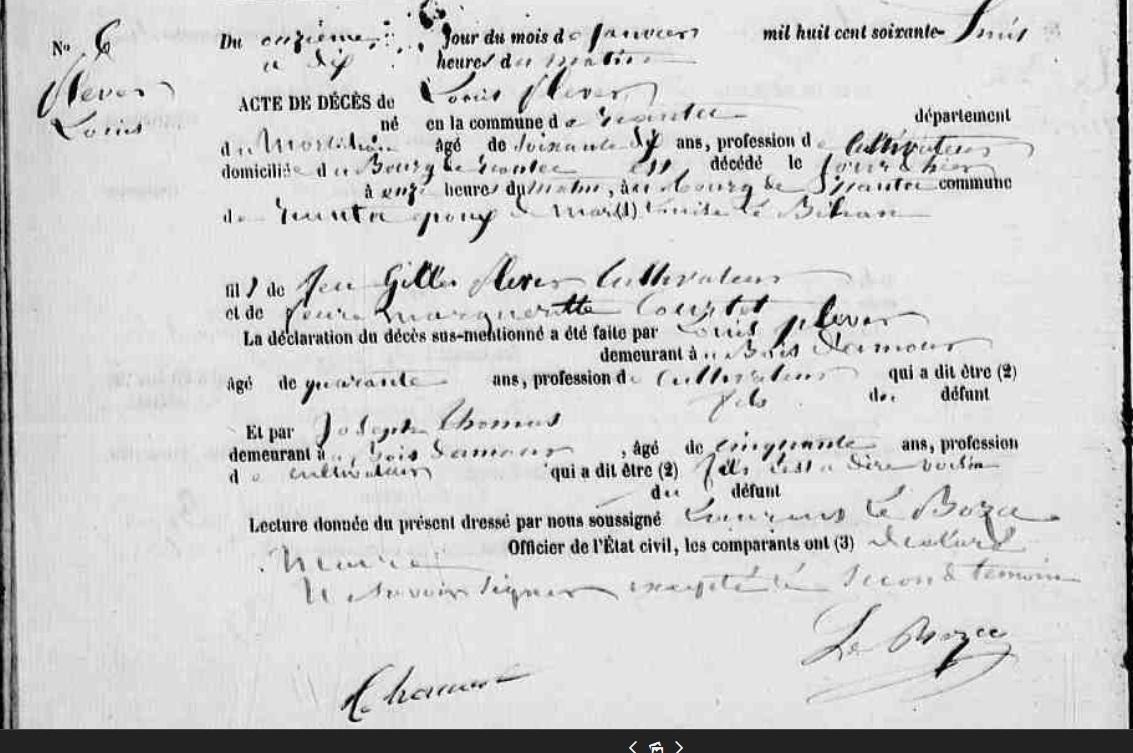 Nº 6
Plever
Louis
Du onzieme Jour du mois de Janvier mil huit cent soixante-huit
a dix heures du matin
ACTE DE DÉCÈS de Louis Plever
né en la commune de département
du Morbihan âgé de soixante dix ans, profession de Cultivateur
domicilié au Bourg de est décédé le Jour d'hier
à onze heures du matin, au bourg de commune
de époux de mari(1) Louise Le Bihan
fils de feu Gilles Plever Cultivateur
et de feue Margueritte
La déclaration du décès sus-mentionné a été faite par Louis plever
demeurant à Bois Damour
âgé de quarante ans, profession de Cultivateur qui a dit être (2)
fils du défunt
Et par Joseph Thomas
demeurant à Bois Damour, âgé de cinquante ans, profession
de cultivateur qui a dit être (2) fils c'est a dire voisin
du défunt
Lecture donnée du présent dressé par nous soussigné Le
Maire Officier de l'État civil, les comparants ont (3) déclaré
Ne savoir signer excepté le second temoin